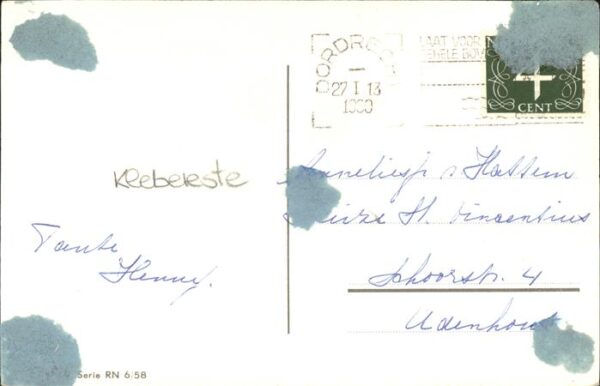 DORDRECHT
27 I 13
1960
LAAT VOOR
4
CENT
Klebereste
Tante
Henny.
v Hattem
Huize St. Vincentius
Schoorstr. 4
Udenhout
Serie RN 6/58